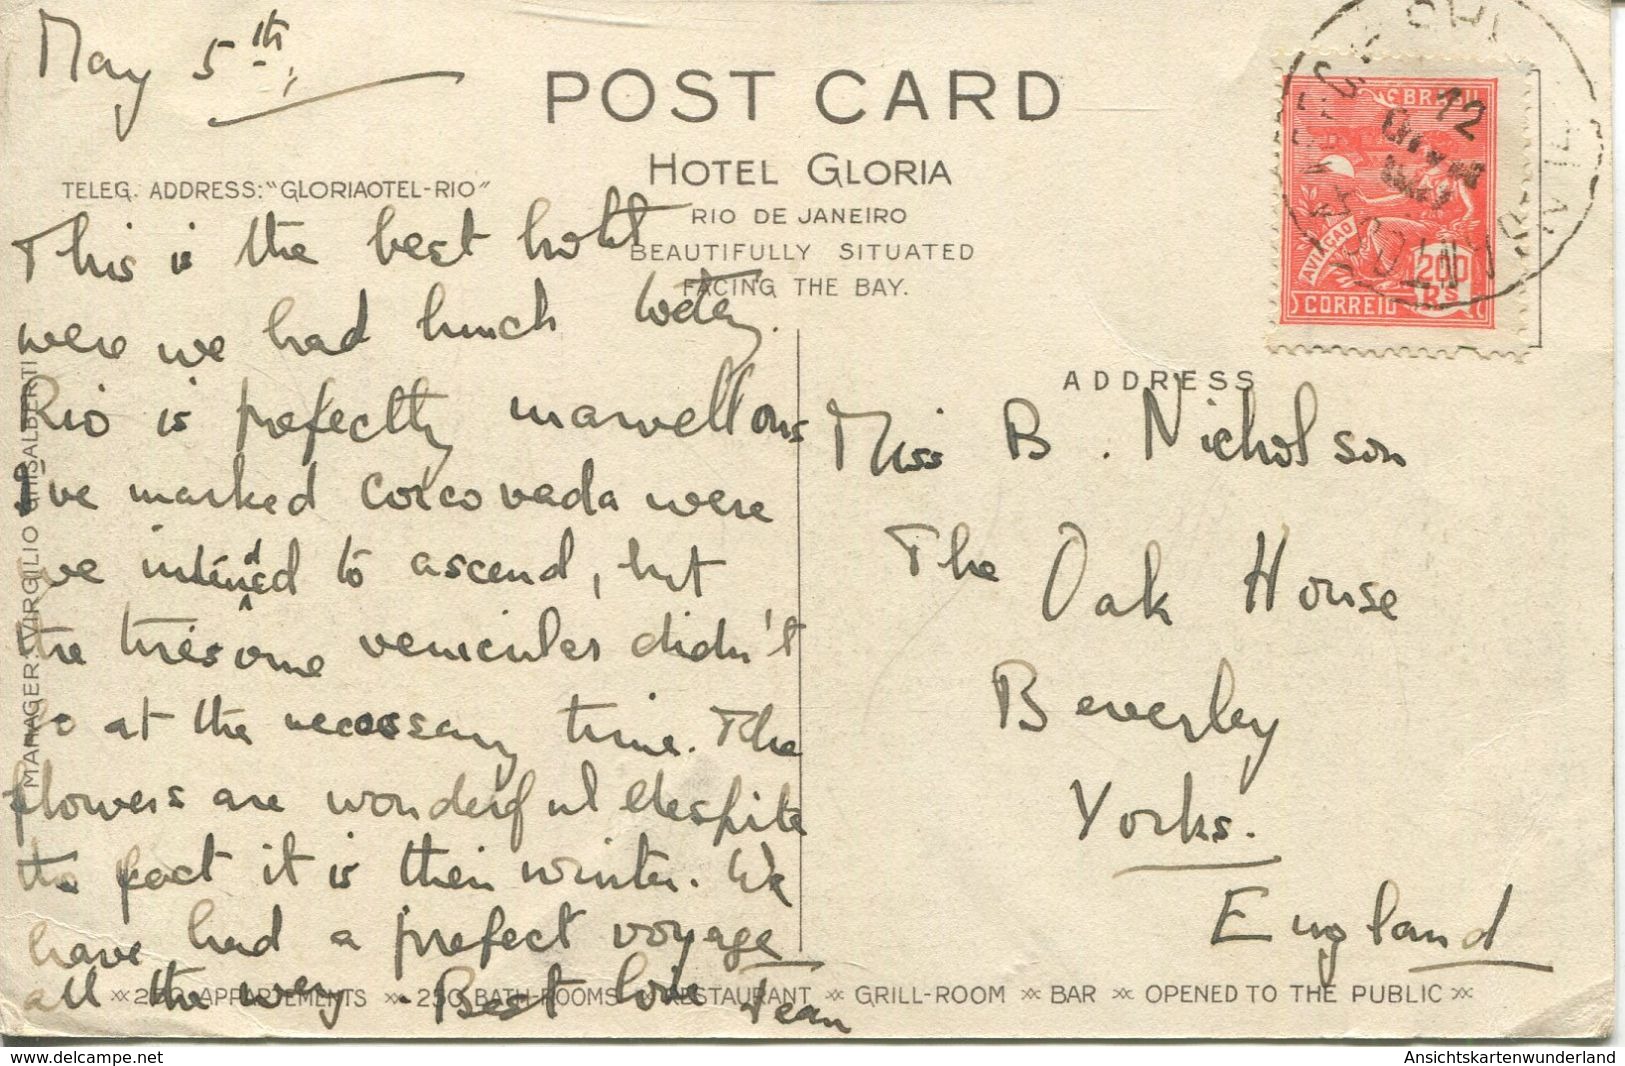 May 5th,
POST CARD
HOTEL GLORIA
RIO DE JANEIRO
BEAUTIFULLY SITUATED
FACING THE BAY.
TELEG. ADDRESS: "GLORIAOTEL-RIO"
This is the best hotel
were we had lunch today.
Rio is prefectly marvellous
I've marked Corcovada were
we intended to ascend, but
the tiresome venicular didn't
go at the necessary time. The
flowers are wonderful despite
the fact it is their winter. We
have had a prefect voyage
all the way. Best love Jean
MANAGER: VIRGILIO GHISALBERTI
BRASIL
AVIAÇÃO
200
RS
CORREIO
12
ADDRESS
Miss B. Nicholson
The Oak House
Beverley
Yorks.
England
250 APPARTEMENTS 250 BATH-ROOMS RESTAURANT GRILL-ROOM BAR OPENED TO THE PUBLIC
https://www.delcampe.net
Ansichtskartenwunderland